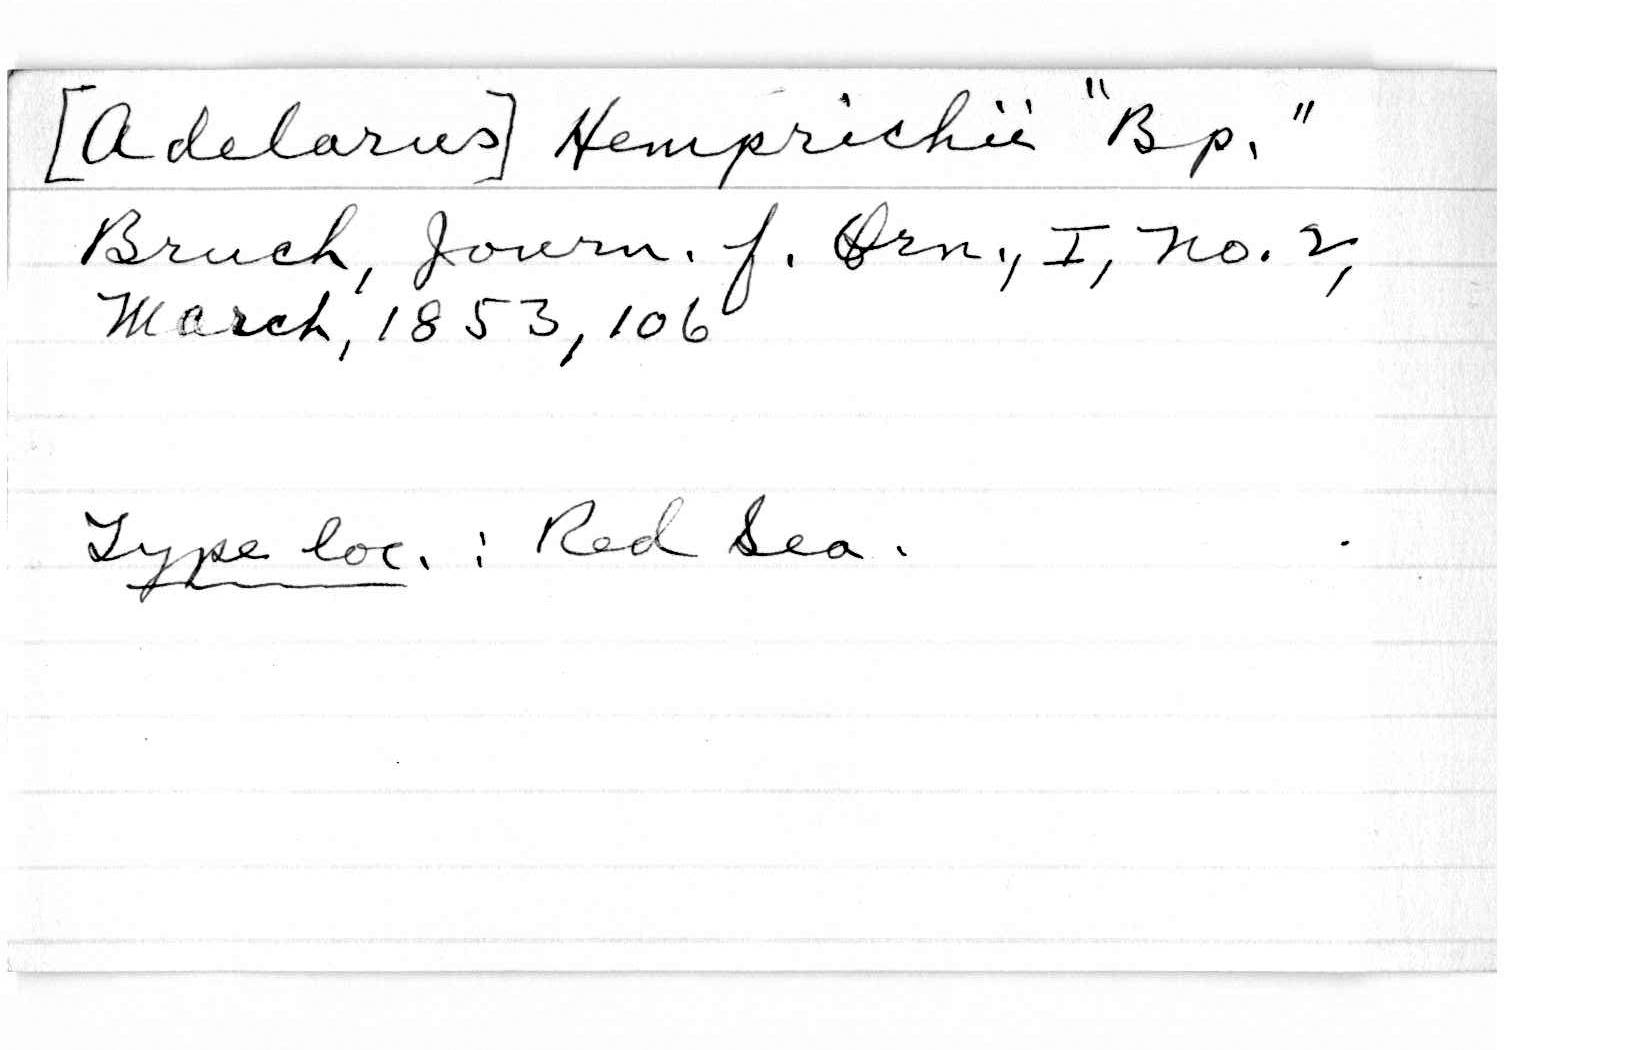 [Adelarus] Hemprichii "Bp."
Bruch, Journ. f. Orn., I, no. 2,
March, 1853, 106
Type loc. : Red Sea.